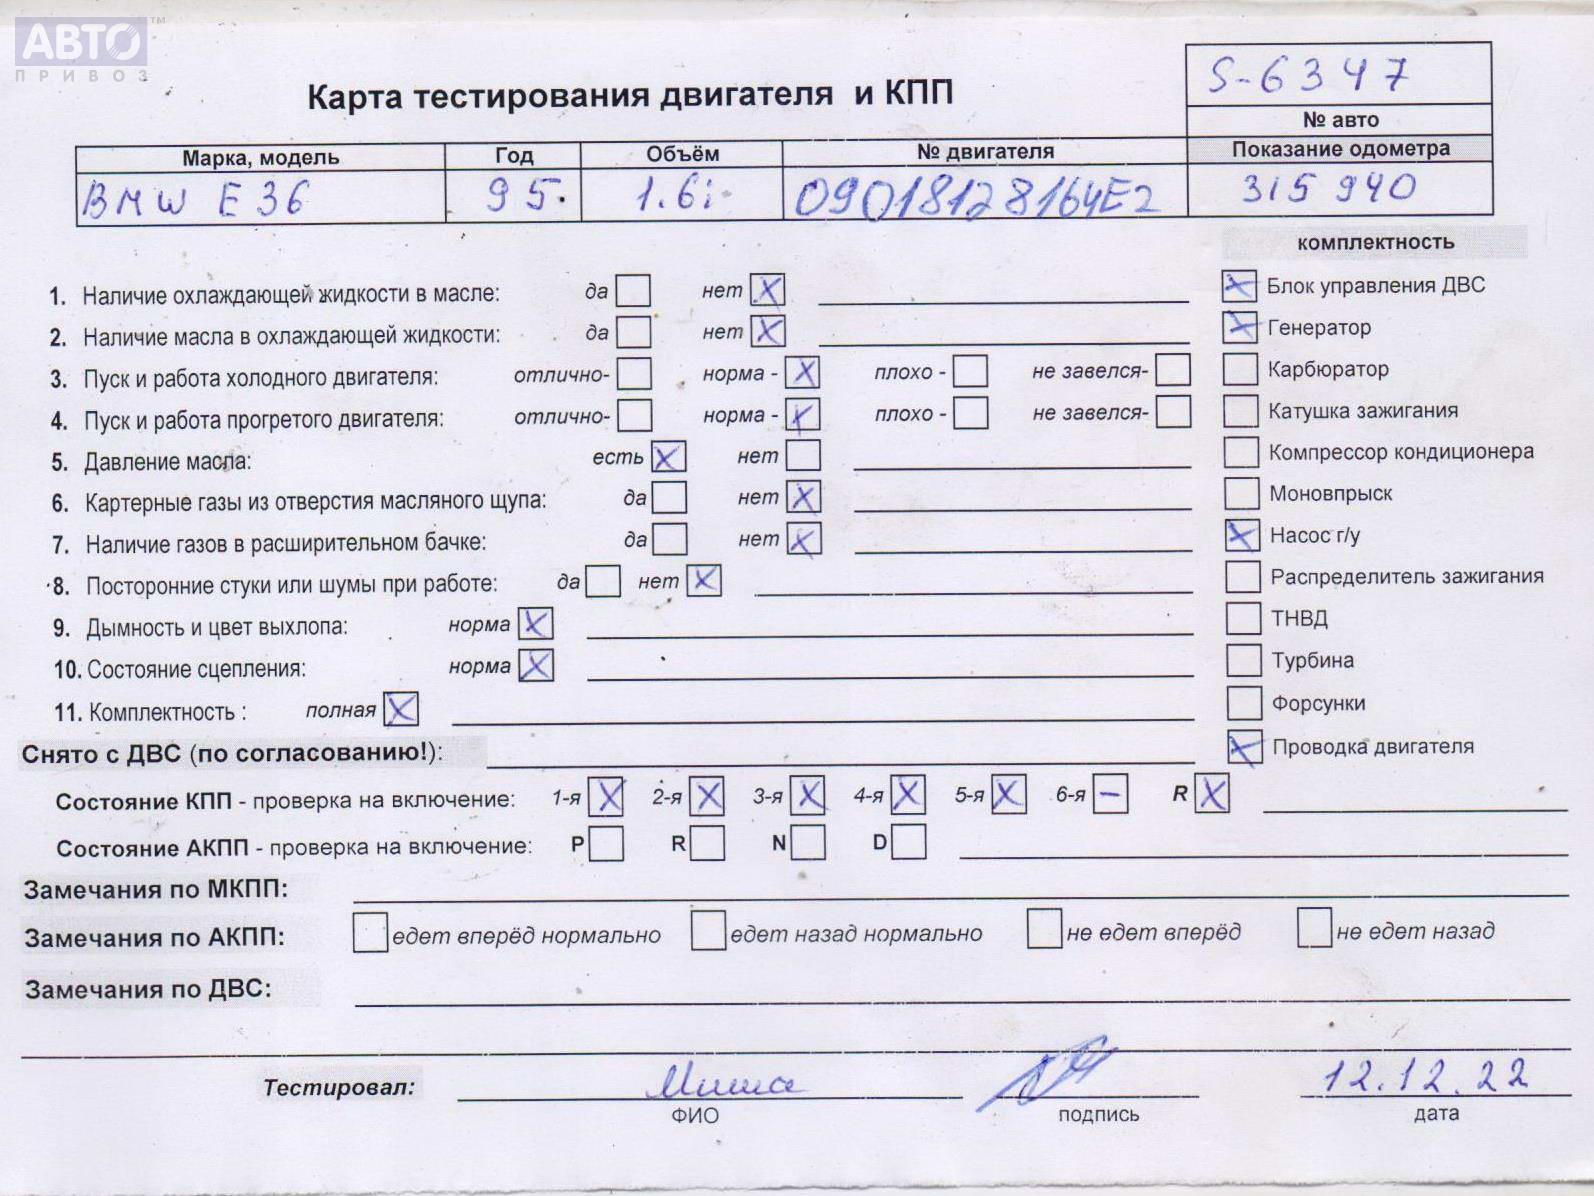 АВТО™
ПРИВОЗ
Карта тестирования двигателя и КПП
S-6347
№ авто
Марка, модель Год Объём № двигателя Показание одометра
BMW E 36 95. 1.6i 09018128164E2 315 940
комплектность
1. Наличие охлаждающей жидкости в масле: да нет X
2. Наличие масла в охлаждающей жидкости: да нет X
3. Пуск и работа холодного двигателя: отлично- норма - X плохо - не завелся-
4. Пуск и работа прогретого двигателя: отлично- норма - X плохо - не завелся-
5. Давление масла: есть X нет
6. Картерные газы из отверстия масляного щупа: да нет X
7. Наличие газов в расширительном бачке: да нет X
8. Посторонние стуки или шумы при работе: да нет X
9. Дымность и цвет выхлопа: норма X
10. Состояние сцепления: норма X
11. Комплектность : полная X
X Блок управления ДВС
X Генератор
Карбюратор
Катушка зажигания
Компрессор кондиционера
Моновпрыск
X Насос г/у
Распределитель зажигания
ТНВД
Турбина
Форсунки
X Проводка двигателя
Снято с ДВС (по согласованию!):
Состояние КПП - проверка на включение: 1-я X 2-я X 3-я X 4-я X 5-я X 6-я – R X
Состояние АКПП - проверка на включение: P R N D
Замечания по МКПП:
Замечания по АКПП: едет вперёд нормально едет назад нормально не едет вперёд не едет назад
Замечания по ДВС:
Тестировал: Миша 12.12.22
ФИО подпись дата